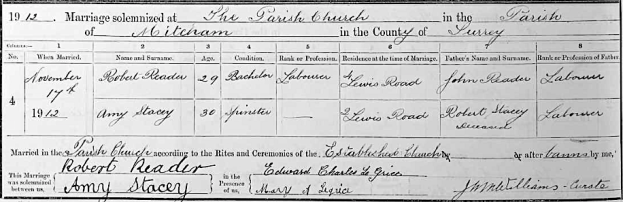 1912. Marriage solemnized at The Parish Church in the Parish
of Mitcham in the County of Surrey
Columns:— 1 2 3 4 5 6 7 8
No. When Married. Name and Surname. Age. Condition. Rank or Profession. Residence at the time of Marriage. Father's Name and Surname. Rank or Profession of Father
4 November 17th 1912 Robert Reader 29 Bachelor Labourer Lewis Road John Reader Labourer
Amy Stacey 30 Spinster — 9 Lewis Road Robert Stacey Deceased Labourer
Married in the Parish Church according to the Rites and Ceremonies of the Established Church by or after banns by me,
This Marriage was solemnized between us, Robert Reader Amy Stacey in the Presence of us, Edward Charles Le Grice Mary A Legrice Williams - Curate